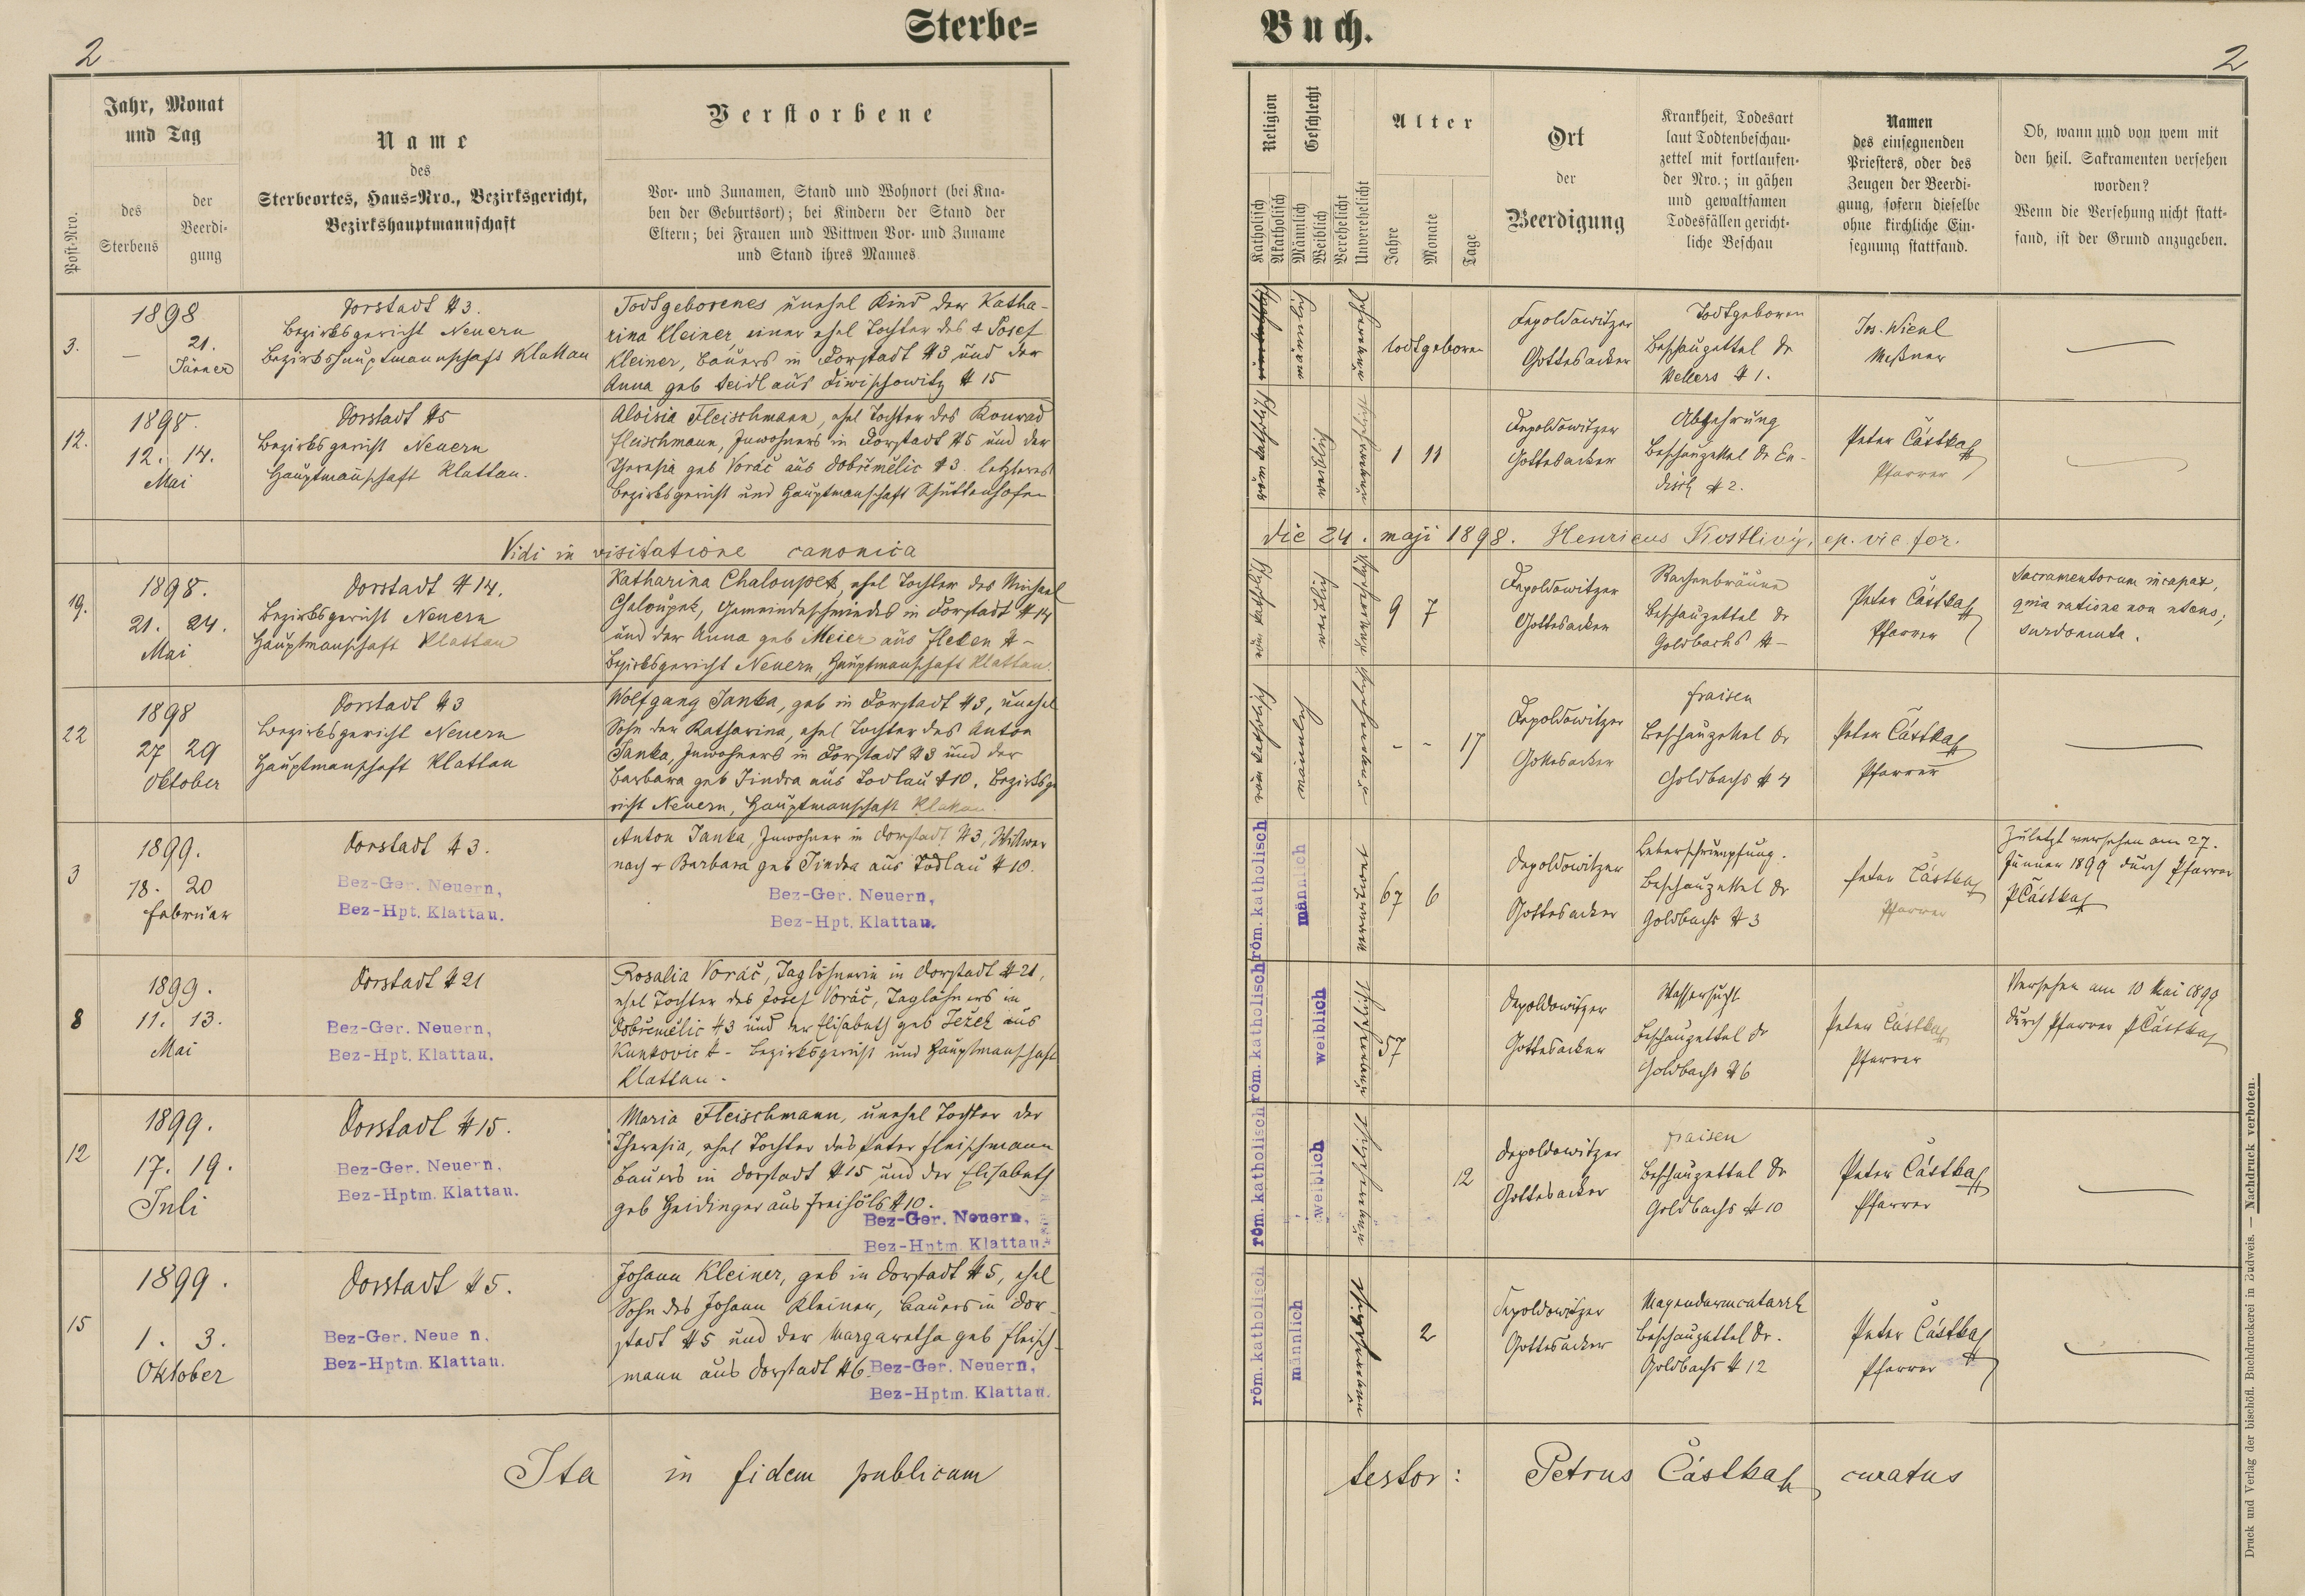 Sterbe=
Buch.
2
2
Jahr, Monat
und Tag
des
Sterbens
der
Beerdi-
gung
Post-Nro.
Name
des
Sterbeortes, Haus=Nro., Bezirksgericht,
Bezirkshauptmannschaft
Verstorbene
Vor- und Zunamen, Stand und Wohnort (bei Kna-
ben der Geburtsort); bei Kindern der Stand der
Eltern; bei Frauen und Wittwen Vor- und Zuname
und Stand ihres Mannes
Religion
Katholisch
Akatholisch
Geschlecht
Männlich
Weiblich
Verehelicht
Unverehelicht
Alter
Jahre
Monate
Tage
Ort
der
Beerdigung
Krankheit, Todesart
laut Todtenbeschau-
zettel mit fortlaufen-
der Nro.; in gähen
und gewaltsamen
Todesfällen gericht-
liche Beschau
Namen
des einsegnenden
Priesters, oder des
Zeugen der Beerdi-
gung, sofern dieselbe
ohne kirchliche Ein-
segnung stattfand.
Ob, wann und von wem mit
den heil. Sakramenten versehen
worden?
Wenn die Versehung nicht statt-
fand, ist der Grund anzugeben.
3.
1898
— 21.
Jänner
Dorstadt # 3.
Bezirksgericht Neuern
Bezirkshauptmannschaft Klattau
Todtgeborenes unehel Kind der Katha-
rina Kleiner, einer ehel Tochter des + Josef
Kleiner, Bauers in Dorstadt # 3 und der
Anna geb Seidl aus Diwischowitz # 15
männlich
unverehel
todtgeboren
Depoldowitzer
Gottesacker
Todtgeboren
Beschauzettel Dr
Wellers # 1.
Jos. Wienl
Meßner
12.
1898.
12. 14.
Mai
Dorstadt # 5
Bezirksgericht Neuern
Hauptmanschaft Klattau.
Aloisia Fleischmann, ehel Tochter des Konrad
Fleischmann, Inwohners in Dorstadt # 5 und der
Theresia geb Voráč aus Dobřemělic # 3. letzteres
Bezirksgericht und Hauptmanschaft Schüttenhofen
röm katholisch
weiblich
unverehelicht
1 11
Depoldowitzer
Gottesacker
Abzehrung
Beschauzettel Dr En-
disch # 2.
Peter Částka
Pfarrer
Vidi in visitatione canonica die 24. maji 1898. Henricus Kostlivý, ep. vic. for.
19.
1898.
21. 24.
Mai
Dorstadt # 14.
Bezirksgericht Neuern
Hauptmanschaft Klattau
Katharina Chaloupek, ehel Tochter des Michael
Chaloupek, Gemeindeschmiedes in Dorstadt # 14
und der Anna geb Meier aus Fleken # -
Bezirksgericht Neuern, Hauptmanschaft Klattau.
röm katholisch
weiblich
unverehelicht
9 7
Depoldowitzer
Gottesacker
Rachenbräune
Beschauzettel Dr
Goldbachs # -
Peter Částka
Pfarrer
Sacramentorum incapax,
quia ratione non utens;
surdomuta.
22
1898
27 29
Oktober
Dorstadt # 3
Bezirksgericht Neuern
Hauptmanschaft Klattau
Wolfgang Janka, geb in Dorstadt # 3, unehel
Sohn der Katharina, ehel Tochter des Anton
Janka, Inwohners in Dorstadt # 3 und der
Barbara geb Jindra aus Todlau # 10. Bezirksge
richt Neuern, Hauptmanschaft Klattau.
röm katholisch
männlich
unverehelicht
- - 17
Depoldowitzer
Gottesacker
Fraisen
Beschauzettel Dr
Goldbachs # 4
Peter Částka
Pfarrer
3
1899.
18. 20
Februar
Dorstadt # 3.
Bez-Ger. Neuern,
Bez-Hpt. Klattau.
Anton Janka, Inwohner in Dorstadt # 3, Wittwer
nach + Barbara geb Jindra aus Todlau # 10.
Bez-Ger. Neuern,
Bez-Hpt. Klattau.
röm. katholisch
männlich
verwitwet
67 6
Depoldowitzer
Gottesacker
Leberschrumpfung.
Beschauzettel Dr
Goldbachs # 3
Peter Částka
Pfarrer
Zuletzt versehen am 27.
Jänner 1899 durch Pfarrer
P Částka
8
1899.
11. 13.
Mai
Dorstadt # 21
Bez-Ger. Neuern,
Bez-Hpt. Klattau.
Rosalia Voráč, Taglöhnerin in Dorstadt # 21,
ehel Tochter des Josef Voráč, Taglöhners in
Dobřemělic # 3 und der Elisabeth geb Ježek aus
Kunkovic # - Bezirksgericht und Hauptmanschaft
Klattau.
röm. katholisch
weiblich
unverehelicht
57
Depoldowitzer
Gottesacker
Wassersucht
Beschauzettel Dr
Goldbachs # 6
Peter Částka
Pfarrer
Versehen am 10 Mai 1899
durch Pfarrer P Částka
12
1899.
17. 19.
Juli
Dorstadt # 15.
Bez-Ger. Neuern,
Bez-Hptm. Klattau.
Maria Fleischmann, unehel Tochter der
Theresia, ehel Tochter des Peter Fleischmann
Bauers in Dorstadt # 15 und der Elisabeth
geb Heidinger aus Freihöls # 10.
Bez-Ger. Neuern,
Bez-Hptm. Klattau.
röm. katholisch
weiblich
unverehelicht
12
Depoldowitzer
Gottesacker
Fraisen
Beschauzettel Dr
Goldbachs # 10
Peter Částka
Pfarrer
15
1899.
1. 3.
Oktober
Dorstadt # 5.
Bez-Ger. Neue n,
Bez-Hptm. Klattau.
Johann Kleiner, geb in Dorstadt # 5, ehel
Sohn des Johann Kleiner, Bauers in Dor-
stadt # 5 und der Margaretha geb Fleisch-
mann aus Dorstadt # 6.
Bez-Ger. Neuern,
Bez-Hptm. Klattau.
röm. katholisch
männlich
unverehelicht
2
Depoldowitzer
Gottesacker
Magendarmcatarrh
Beschauzettel Dr.
Goldbachs # 12
Peter Částka
Pfarrer
Ita in fidem publicam testor: Petrus Částka curatus
Druck und Verlag der bischöfl. Buchdruckerei in Budweis. — Nachdruck verboten.